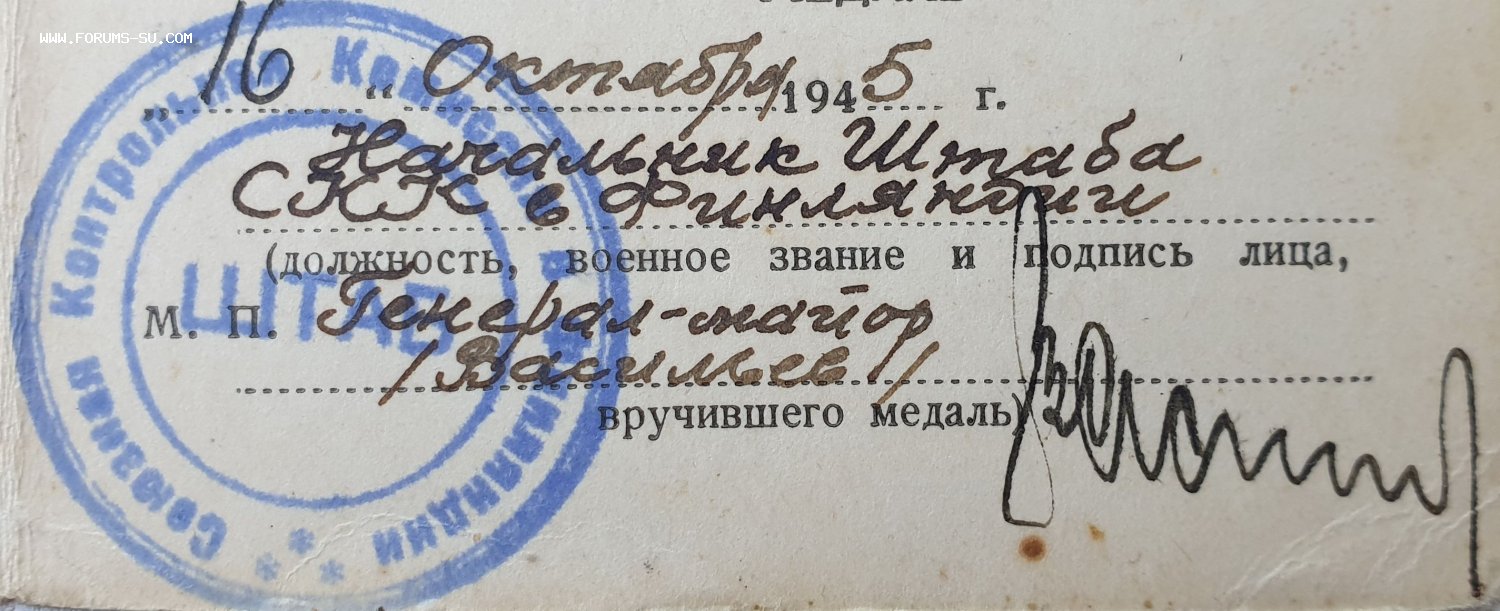 WWW.FORUMS-SU.COM
„16“ Октября 1945 г.
Начальник Штаба
СКК в Финляндии
(должность, военное звание и подпись лица,
М. П. Генерал-майор
/Васильев/
вручившего медаль)
Союзная Контрольная Комиссия в Финляндии
ШТАБ